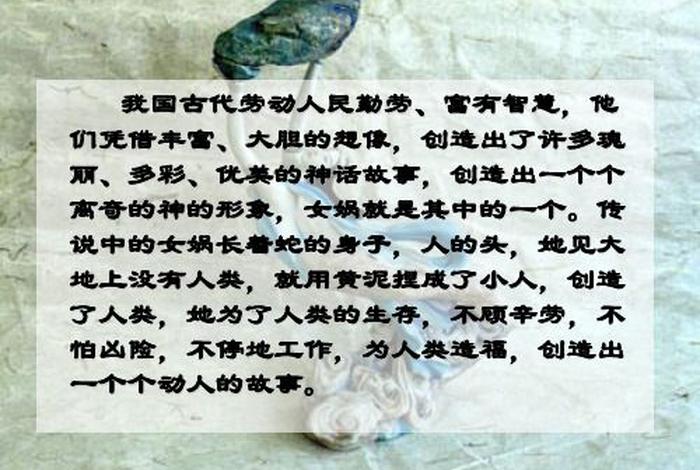 我国古代劳动人民勤劳、富有智慧，他
们凭借丰富、大胆的想像，创造出了许多瑰
丽、多彩、优美的神话故事，创造出一个个
离奇的神的形象，女娲就是其中的一个。传
说中的女娲长着蛇的身子，人的头，她见大
地上没有人类，就用黄泥捏成了小人，创造
了人类，她为了人类的生存，不顾辛劳，不
怕凶险，不停地工作，为人类造福，创造出
一个个动人的故事。